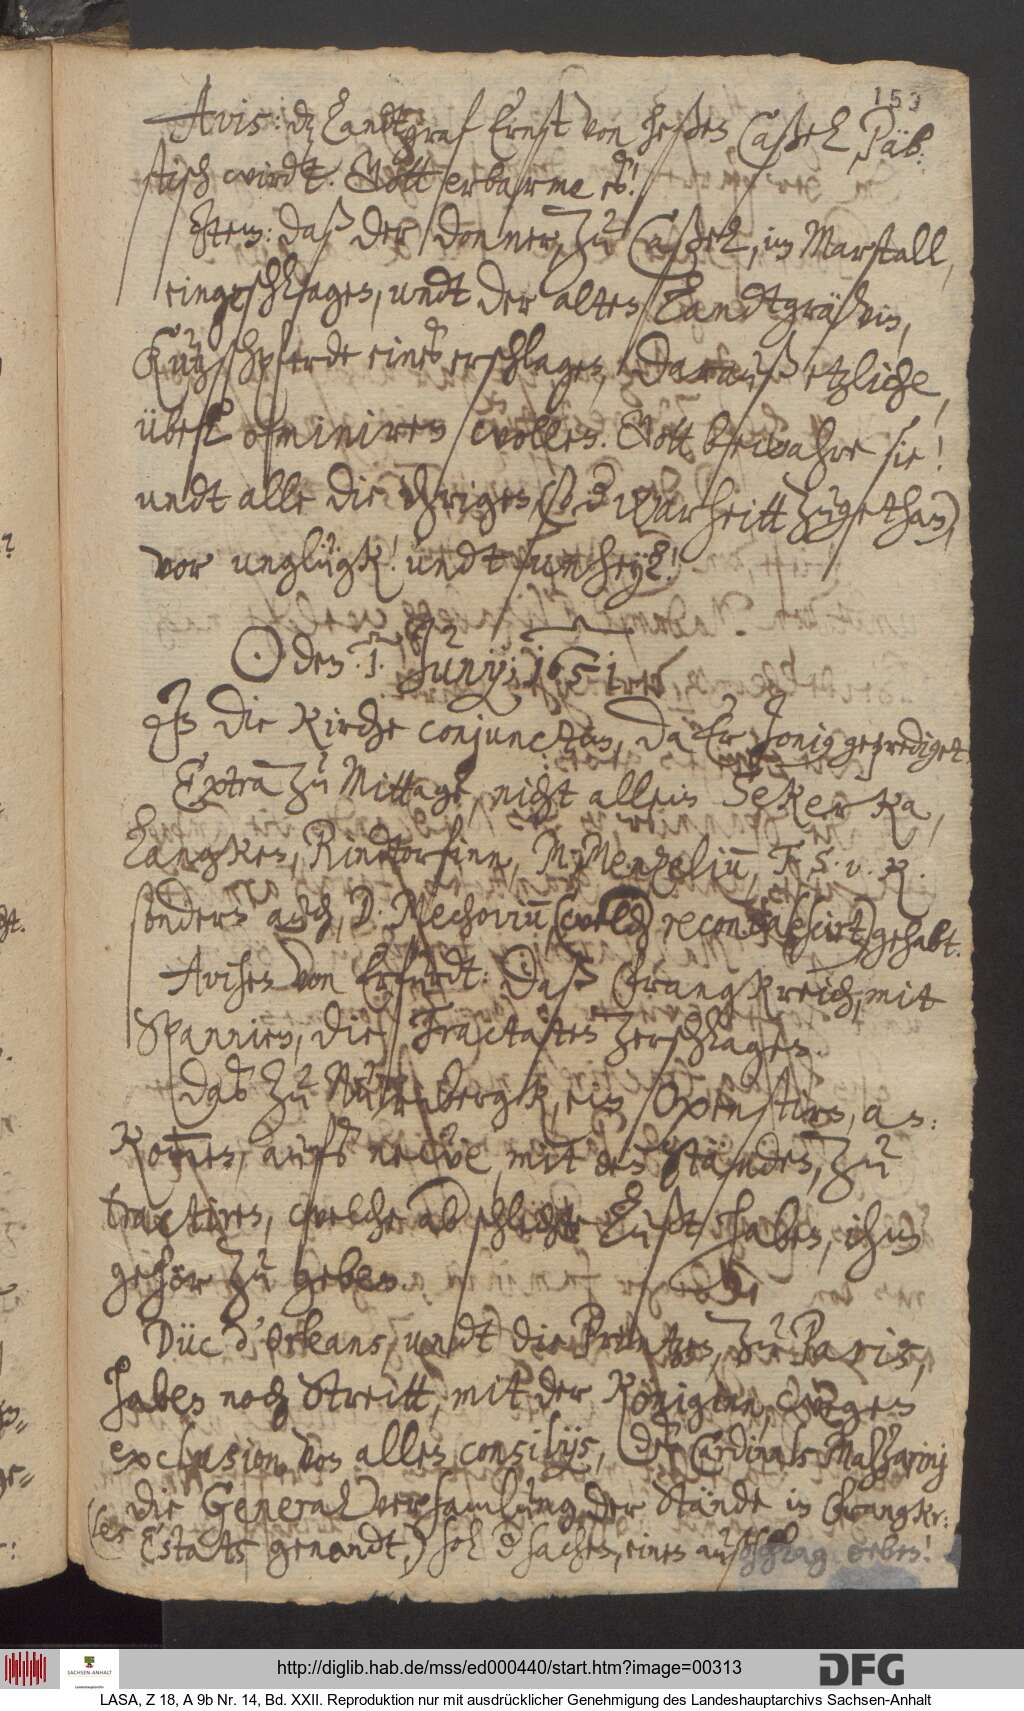 153
Avis: dz Landtgraf Ernst von Heßen Caßel, Päb-
stisch wirdt. Gott erbarme es!
Item: daß der donner, zu Caßel, im Marstall,
eingeschlagen, undt der alten Landtgräffin,
Kutzschpferde eines erschlagen, darauß etzliche,
übel ominiren wollen. Gott bewahre sie!
undt alle die ihrigen, (so d warheitt zugethan)
vor unglügk! undt unheyl!
☉ den 1. Junij; 1651
In die kirche conjunctim, da Er Jonig geprediget.
Extra zu Mittage, nicht allein Sekerka,
Rindtorfinn, M. Menzelium, T. S. v. R.
sonders auch, D. Mechovium, (welch gehabt.
Avisen von Erfurdt: Daß Frangkreich, mit
Spannien, die Tractaten zerschlagen.
Das zu Nürnbergk, ein Oxenstirn, an-
kommen, aufs neue, mit den Ständen, zu
tractiren, welche aber schlechte Lust haben, ihm
gehör zu geben.
Düc d'Orleans, undt die Printzen, zu Paris,
haben noch Streitt, mit der Königinn, wegen
exclusion von allen consilijs, des Cardinals Mazzarinj
die General versamlung der Stände in Frangkr:
(les Estats genandt,) sol d sachen, einen außschlag geben!
http://diglib.hab.de/mss/ed000440/start.htm?image=00313
SACHSEN-ANHALT
DFG
LASA, Z 18, A 9b Nr. 14, Bd. XXII. Reproduktion nur mit ausdrücklicher Genehmigung des Landeshauptarchivs Sachsen-Anhalt